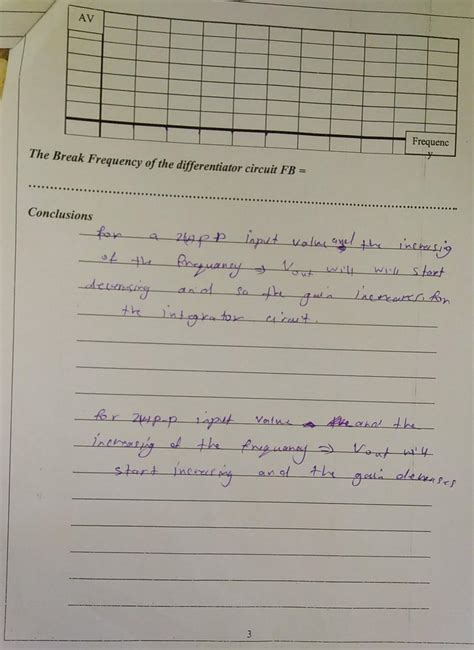 AV
Frequenc
y
The Break Frequency of the differentiator circuit FB =
Conclusions
for a 2Vp-p input value and the increasig
of the frequancy => Vout will will start
decreasing and so the gain increases, for
the integrator circuit.
for 2Vp-p input value and the
increasing of the frequancy => Vout will
start increasing and the gain decreases
3